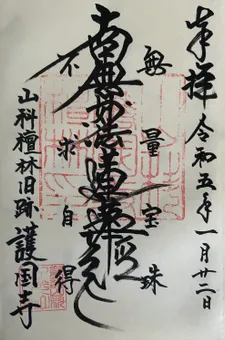 奉拝 令和五年一月廿二日
無量宝珠
南無妙法蓮華経
不求自得
山科檀林旧跡 護国寺